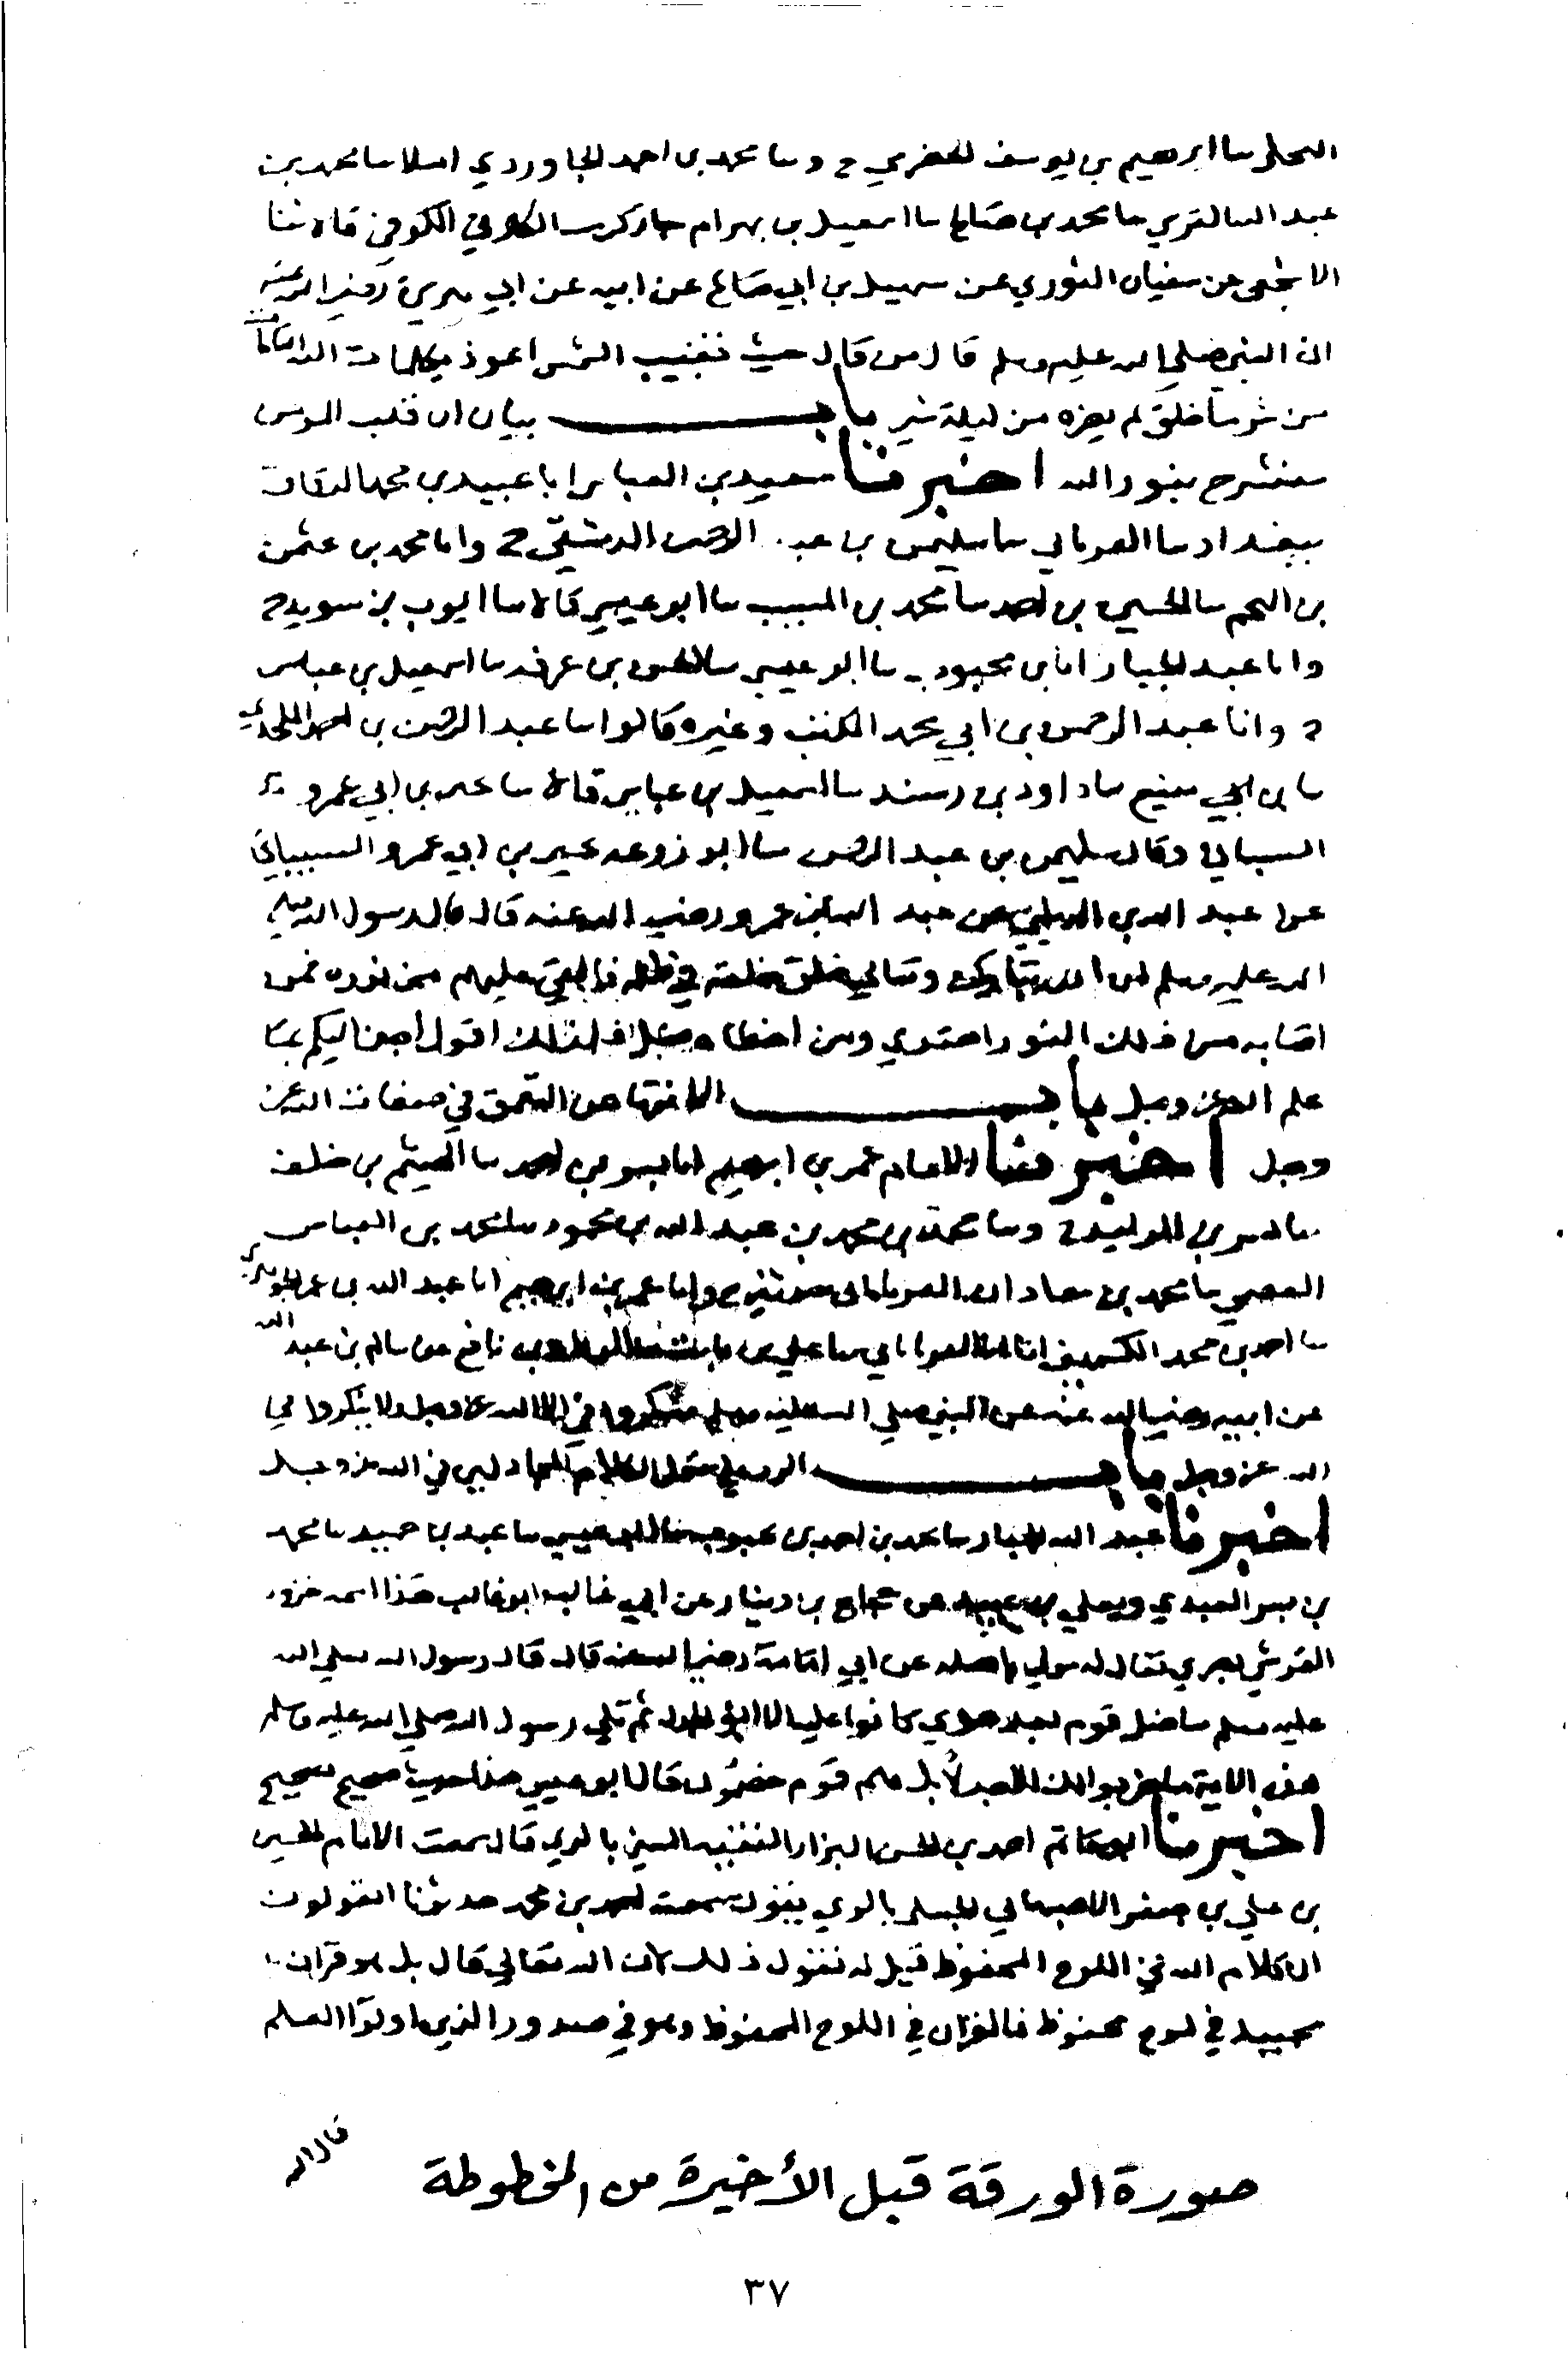 سا ابرهيم بن يوسف الحضرمي ح وسا محمد بن احمد الجاوردي املا سا محمد بن
عبد الله سا محمد بن صالح سا اسمعيل بن بهرام الكوفي قالا ثنا
الاشجعي عن سفيان الثوري عن سهيل بن ابي صالح عن ابيه عن ابي هريرة رضي الله عنه
ان النبي صلى الله عليه وسلم قال من قال حين تغيب الشمس اعوذ بكلمات الله التامات
من شر ما خلق لم يضره من ليلة شي باب بيان ان قلب المومن
ينشرح بنور الله اخبرنا سعيد بن العباس ابا عبيد بن محمد الدقاق
ببغداد سا الفريابي سا سليمن بن عبد الرحمن الدمشقي ح وانا محمد بن عثمن
بن النجم سا الحسين بن احمد سا محمد بن المسيب سا ابو عيسى قالا سا ايوب بن سويد ح
وانا عبد الجبار انا بن محبوب سا ابو عيسى سا الحسن بن عرفه سا اسمعيل بن عياش
ح وانا عبد الرحمن بن ابي محمد وغيره قالوا سا عبد الرحمن بن احمد
سا بن منيع سا داود بن رسيد سا اسمعيل بن عياش قالا سا يحيى بن ابي عمرو
السيباني وقال سليمن بن عبد الرحمن سا ابو زرعه يحيى بن ابي عمرو السيباني
عن عبد الله بن الديلمي عن عبد الله بن عمرو رضي الله عنه قال قال رسول الله صلى
الله عليه وسلم ان الله تبارك وتعالى خلق خلقه في ظلمة فالقى عليهم من نوره فمن
اصابه من ذلك النور اهتدى ومن اخطاه ضل فلذلك اقول جف القلم بما
علم الله عز وجل باب الانتها عن التعمق في صفات الله عز
وجل اخبرنا الامام عمر بن ابرهيم انا بن احمد سا الهيثم بن خلف
سا بن الوليد ح وسا محمد بن محمد بن عبد الله بن محمود سا محمد بن العباس
العصمي سا محمد بن معاذ وانا عمر بن ابرهيم انا عبد الله بن عمر
سا احمد بن محمد انا سا علي بن نافع عن سالم بن عبد الله
عن ابيه رضي الله عنه عن النبي صلى الله عليه وسلم تفكروا في الا الله عز وجل ولا تفكروا في
الله عز وجل باب الرد على الكلام المجادلين في الله عز وجل
اخبرنا عبد الله الجبار سا محمد بن احمد بن محبوب سا ابو عيسى سا عبد بن حميد سا محمد
بن بسر العبدي ويعلى بن عبيد عن حجاج بن دينار عن ابي غالب ابو غالب هذا اسمه حزور
القرشي بصري يقال له مولى باهله عن ابي امامة رضي الله عنه قال قال رسول الله صلى الله
عليه وسلم ما ضل قوم بعد هدى كانوا عليه الا اوتوا الجدل ثم تلى رسول الله صلى الله عليه وسلم
هذه الاية ما ضربوه لك الا جدلا بل هم قوم خصمون قال ابو عيسى هذا حديث صحيح صحيح
اخبرنا ابو حاتم احمد بن الحسن البزار الفقيه بالري قال سمعت الامام الحسين
بن علي بن جعفر الاصبهاني بالري يقول سمعت احمد بن محمد اتقولون
ان كلام الله في اللوح المحفوظ قيل له نقول ذلك لان الله تعالى قال بل هو قران
مجيد في لوح محفوظ فالقران في اللوح المحفوظ وهو في صدور الذين اوتوا العلم
قال الله
صورة الورقة قبل الأخيرة من المخطوطة
٣٧